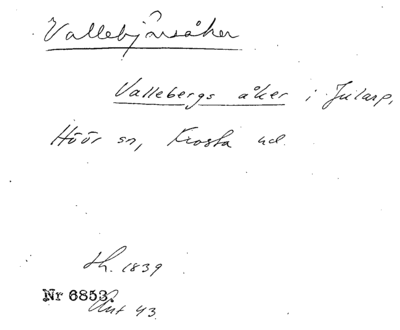 Vallebjärsåker
Vallebergs åker i Jularp,
Höör sn, Frosta hd.
Lh. 1839
Nr 6853.
Ant 43